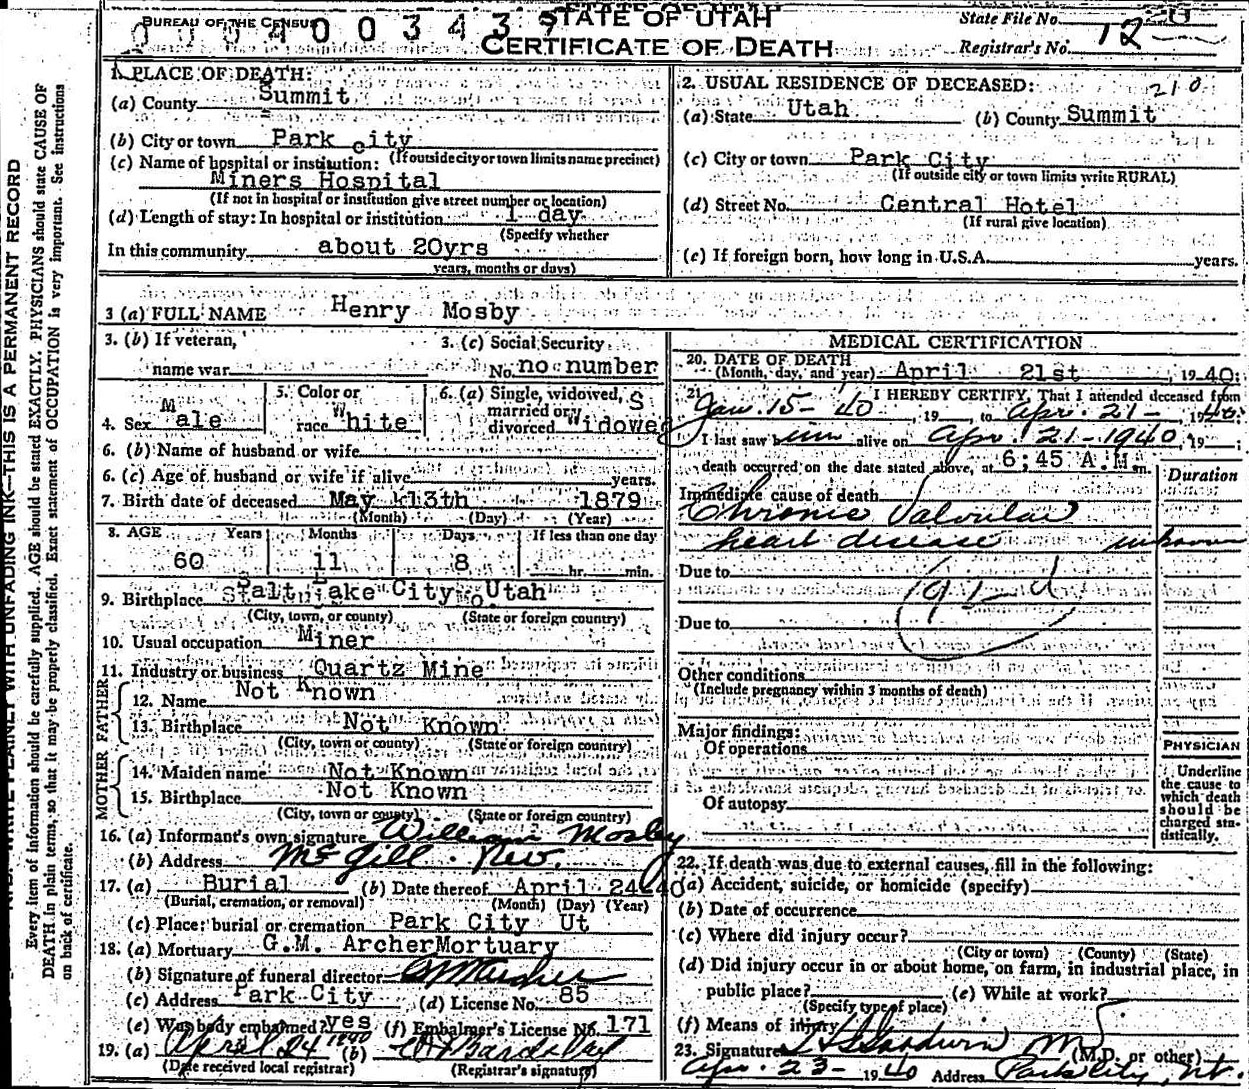 STATE OF UTAH
BUREAU OF THE CENSUS
0 0 0 4 0 0 3 4 3
CERTIFICATE OF DEATH
State File No. 20
Registrar's No. 12
N.B.—WRITE PLAINLY WITH UNFADING INK—THIS IS A PERMANENT RECORD
Every item of information should be carefully supplied. AGE should be stated EXACTLY. PHYSICIANS should state CAUSE OF
DEATH in plain terms, so that it may be properly classified. Exact statement of OCCUPATION is very important. See instructions
on back of certificate.
1. PLACE OF DEATH:
(a) County Summit
(b) City or town Park city
(If outside city or town limits name precinct)
(c) Name of hospital or institution:
Miners Hospital
(If not in hospital or institution give street number or location)
(d) Length of stay: In hospital or institution 1 day
(Specify whether
In this community about 20yrs
years, months or days)
2. USUAL RESIDENCE OF DECEASED: 210
(a) State Utah (b) County Summit
(c) City or town Park City
(If outside city or town limits write RURAL)
(d) Street No. Central Hotel
(If rural give location)
(e) If foreign born, how long in U.S.A. years.
3 (a) FULL NAME Henry Mosby
3. (b) If veteran,
name war
3. (c) Social Security
No. no number
4. Sex Male
5. Color or
race White
6. (a) Single, widowed,
married or
divorced Widowed
S
6. (b) Name of husband or wife
6. (c) Age of husband or wife if alive years.
7. Birth date of deceased May 13th 1879
(Month) (Day) (Year)
8. AGE Years Months Days If less than one day
60 11 8 hr. min.
9. Birthplace Salt Lake City Utah
(City, town, or county) (State or foreign country)
10. Usual occupation Miner
11. Industry or business Quartz Mine
FATHER
12. Name Not Known
13. Birthplace Not Known
(City, town or county) (State or foreign country)
MOTHER
14. Maiden name Not Known
15. Birthplace Not Known
(City, town or county) (State or foreign country)
16. (a) Informant's own signature William Mosby
(b) Address McGill . Nev.
17. (a) Burial (b) Date thereof April 24-40
(Burial, cremation, or removal) (Month) (Day) (Year)
(c) Place: burial or cremation Park City Ut
18. (a) Mortuary G.M. ArcherMortuary
(b) Signature of funeral director GMArcher
(c) Address Park City (d) License No. 85
(e) Was body embalmed? yes (f) Embalmer's License No. 171
19. (a) April 24 1940 (b)
(Date received local registrar) (Registrar's signature)
MEDICAL CERTIFICATION
20. DATE OF DEATH
(Month, day, and year) April 21st, 1940:
21. I HEREBY CERTIFY, That I attended deceased from
Jan. 15-40, 19 to Apr. 21-, 1940:
I last saw him alive on Apr. 21-1940, 19 ;
death occurred on the date stated above, at 6;45 A.M m.
Duration
Immediate cause of death
Chronic Valvular
heart disease unknown
Due to
Due to
Other conditions
(Include pregnancy within 3 months of death)
Major findings:
Of operations
Of autopsy
PHYSICIAN
Underline
the cause to
which death
should be
charged sta-
tistically.
22. If death was due to external causes, fill in the following:
(a) Accident, suicide, or homicide (specify)
(b) Date of occurrence
(c) Where did injury occur?
(City or town) (County) (State)
(d) Did injury occur in or about home, on farm, in industrial place, in
public place? (e) While at work?
(Specify type of place)
(f) Means of injury
23. Signature Goodwin M
(M.D. or other)
Apr. 23- 1940 Address Park City, Ut.